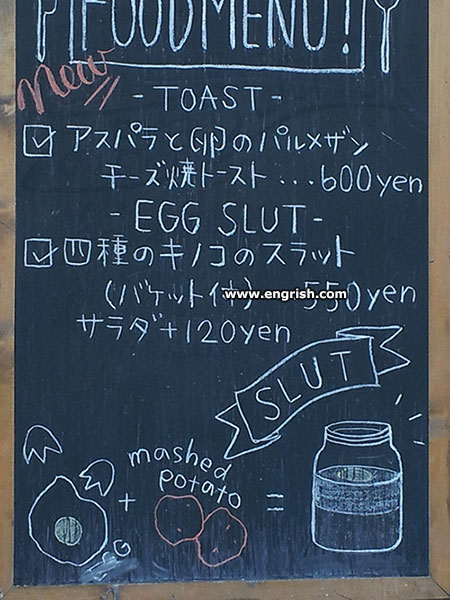 FOOD MENU!
New
- TOAST -
アスパラと卵のパルメザン
チーズ焼トースト ... 600yen
- EGG SLUT -
四種のキノコのスラット
(バケット付) 550yen
www.engrish.com
サラダ+120yen
SLUT
mashed
potato
+ =
EGG